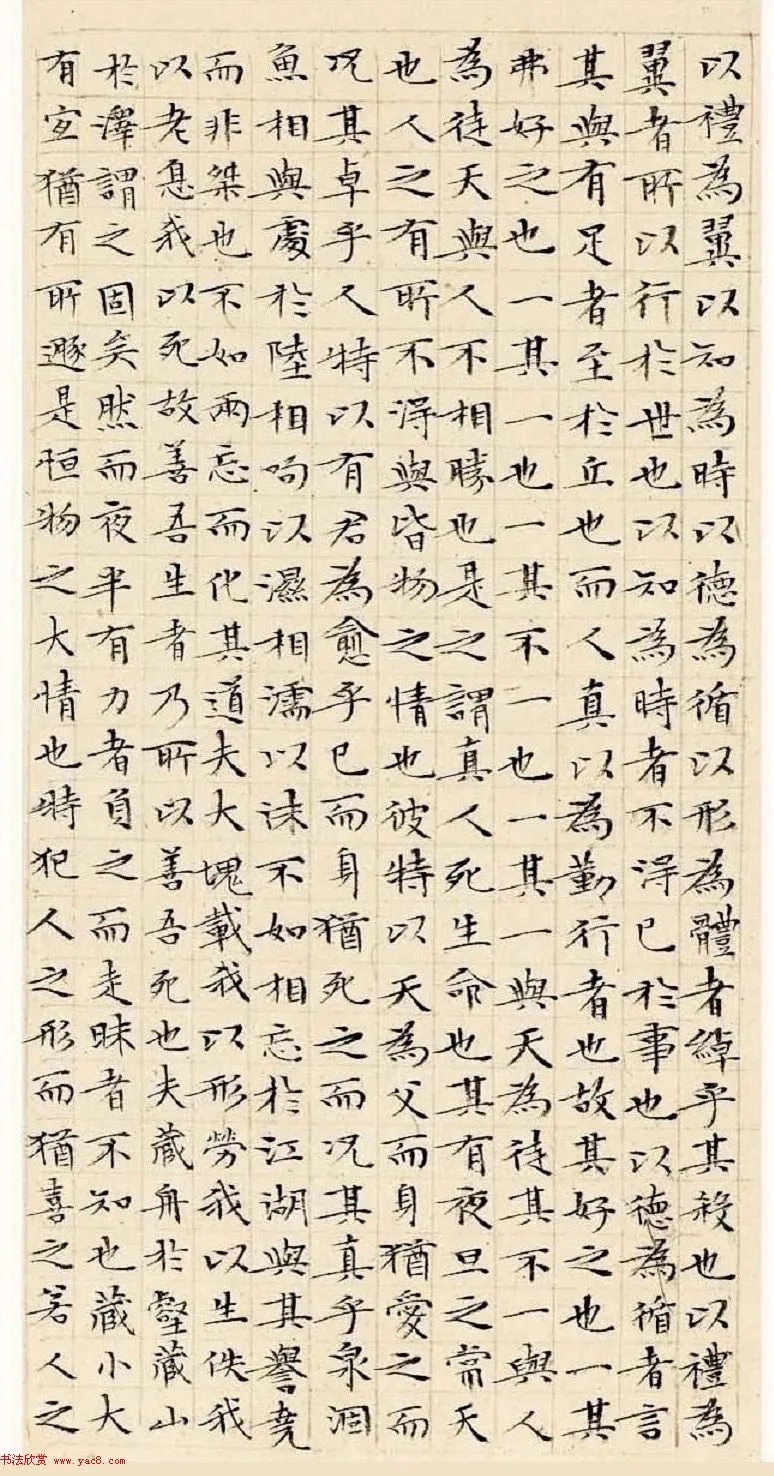 以禮為翼以知為時以德為循以形為體者綽乎其殺也以禮為
翼者所以行於世也以知為時者不得已於事也以德為循者言
其與有足者至於丘也而人真以為勤行者也故其好之也一其
弗好之也一其一也一其不一也一其一與天為徒其不一與人
為徒天與人不相勝也是之謂真人死生命也其有夜旦之常天
也人之有所不得與皆物之情也彼特以天為父而身猶愛之而
况其卓乎人特以有君為愈乎已而身猶死之而况其真乎泉涸
魚相與處於陸相呴以濕相濡以沫不如相忘於江湖與其譽堯
而非桀也不如兩忘而化其道夫大塊載我以形勞我以生佚我
以老息我以死故善吾生者乃所以善吾死也夫藏舟於壑藏山
於澤謂之固矣然而夜半有力者負之而走昧者不知也藏小大
有宜猶有所遯是恒物之大情也時犯人之形而猶喜之若人之
书法欣赏 www.yac8.com